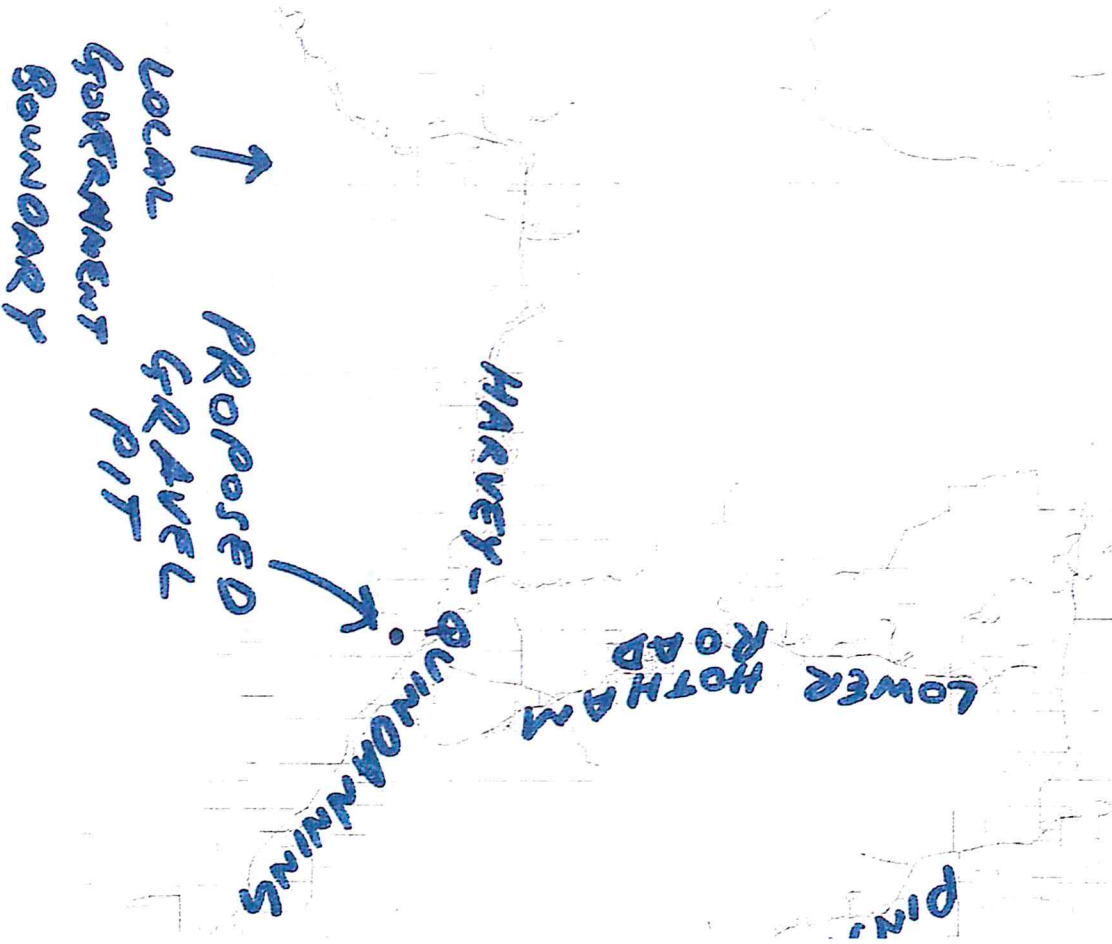 LOCAL
GOVERNMENT
BOUNDARY
PROPOSED
GRAVEL
PIT
HARVEY- QUINDANNING
LOWER HOTHAM
ROAD